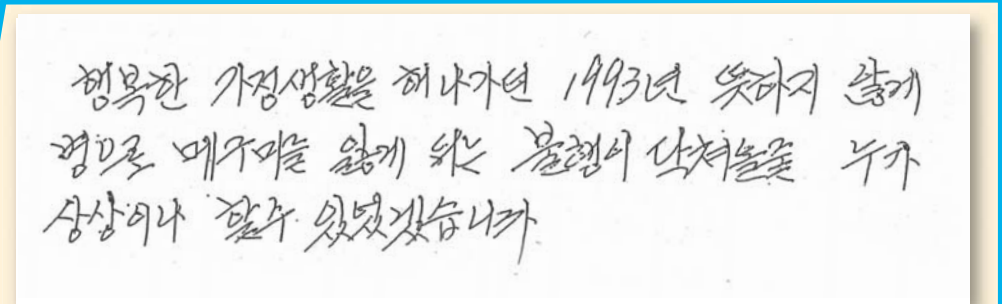 행복한 가정생활을 해나가던 1993년 뜻하지 않게
병으로 메구미를 잃게 되는 불행이 닥쳐들줄 누가
상상이나 할수 있었겠습니까